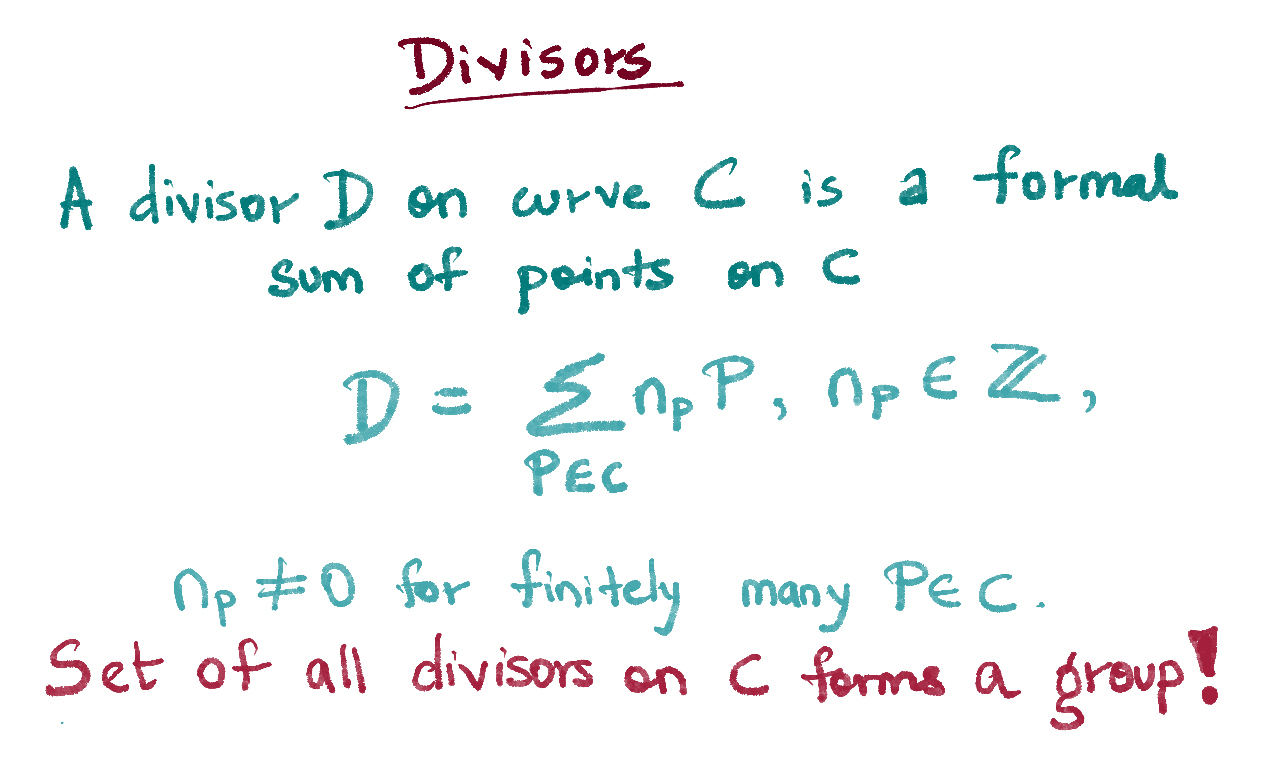 Divisors
A divisor D on curve C is a formal
sum of points on C
D = ∑ n_p P, n_p ∈ ℤ,
P∈C
n_p ≠ 0 for finitely many P∈C.
Set of all divisors on C forms a group!